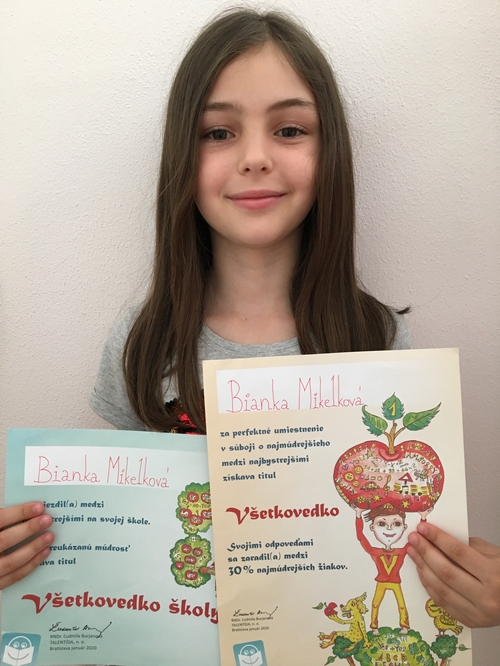 Bianka Mikelková
za perfektné umiestnenie
v súboji o najmúdrejšieho
medzi najbystrejšími
získava titul
Všetkovedko
Svojimi odpoveďami
sa zaradil(a) medzi
30% najmúdrejších žiakov.
RNDr. Ľudmila Burjanová
TALENTÍDA, n. o.
Bratislava január 2020
1
V
Bianka Mikelková
jezdil(a) medzi
rejšími na svojej škole.
reukázanú múdrosť
ava titul
Všetkovedko školy
RNDr. Ľudmila Burjanová
TALENTÍDA, n. o.
Bratislava január 2020